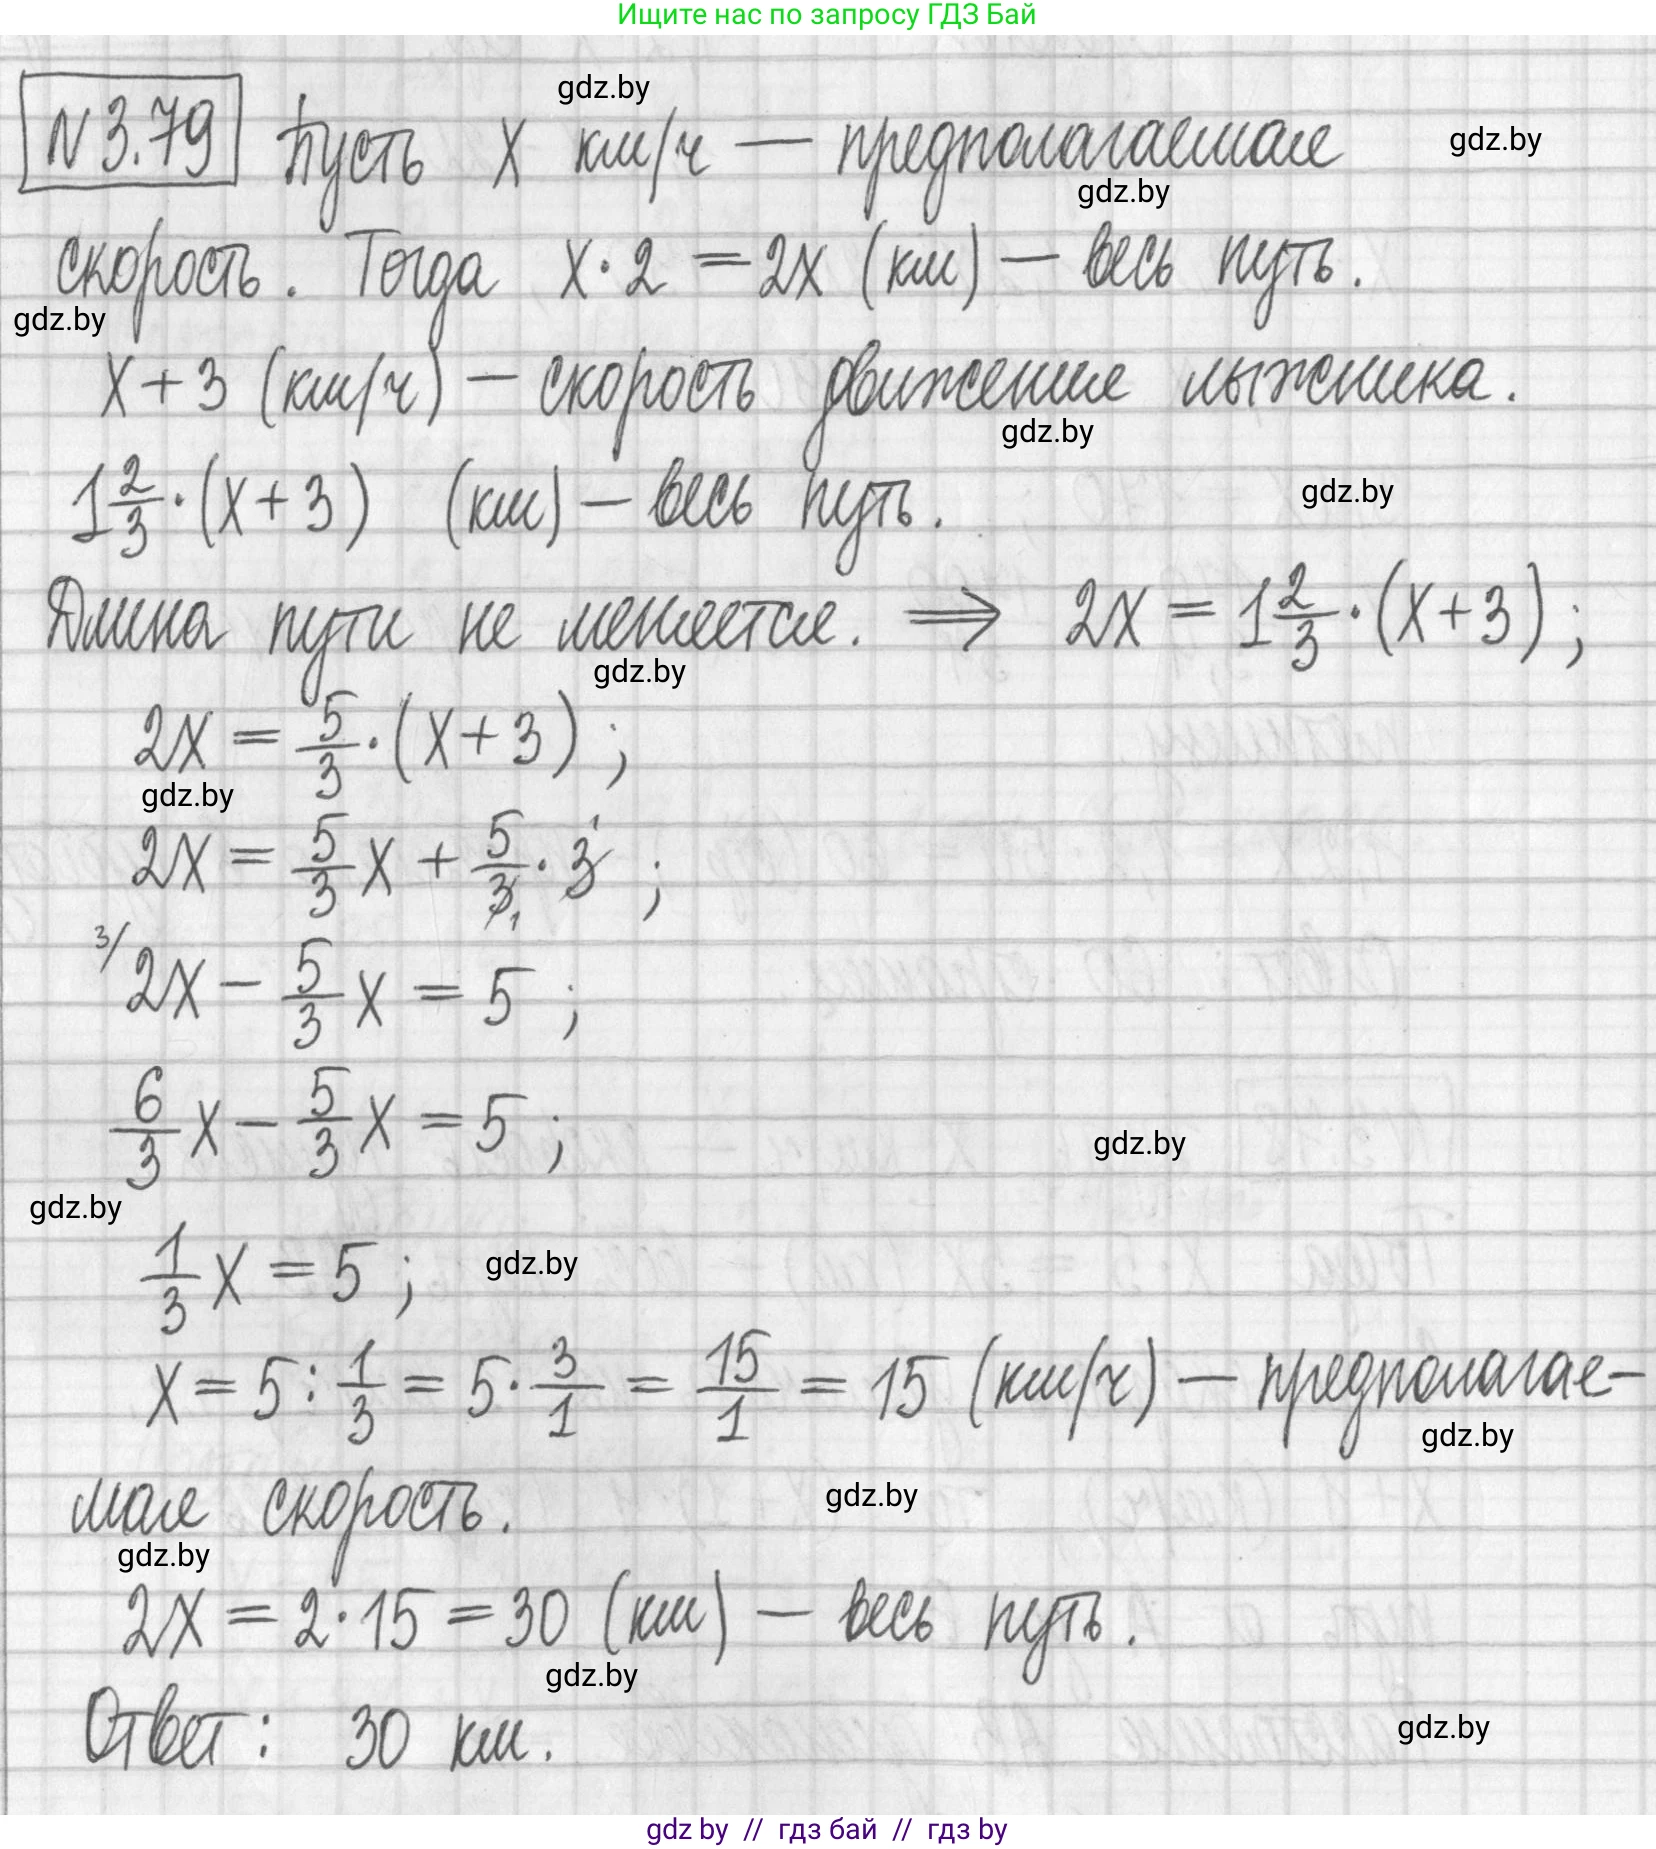 Ищите нас по запросу ГДЗ Бай
gdz.by
N 3.79 Пусть x км/ч — предполагаемая
gdz.by
gdz.by
скорость. Тогда x · 2 = 2x (км) — весь путь.
gdz.by
x + 3 (км/ч) — скорость движения лыжника.
gdz.by
1 2/3 · (x + 3) (км) — весь путь.
gdz.by
Длина пути не меняется. ⟹ 2x = 1 2/3 · (x + 3) ;
gdz.by
2x = 5/3 · (x + 3) ;
gdz.by
2x = 5/3 x + 5/3 1 · 3 1 ;
3/ 2x − 5/3 x = 5 ;
6/3 x − 5/3 x = 5 ;
gdz.by
gdz.by
1/3 x = 5 ;
gdz.by
x = 5 : 1/3 = 5 · 3/1 = 15/1 = 15 (км/ч) — предполагае-
gdz.by
мая скорость.
gdz.by
gdz.by
2x = 2 · 15 = 30 (км) — весь путь.
gdz.by
Ответ: 30 км.
gdz.by
gdz by // гдз бай // гдз by